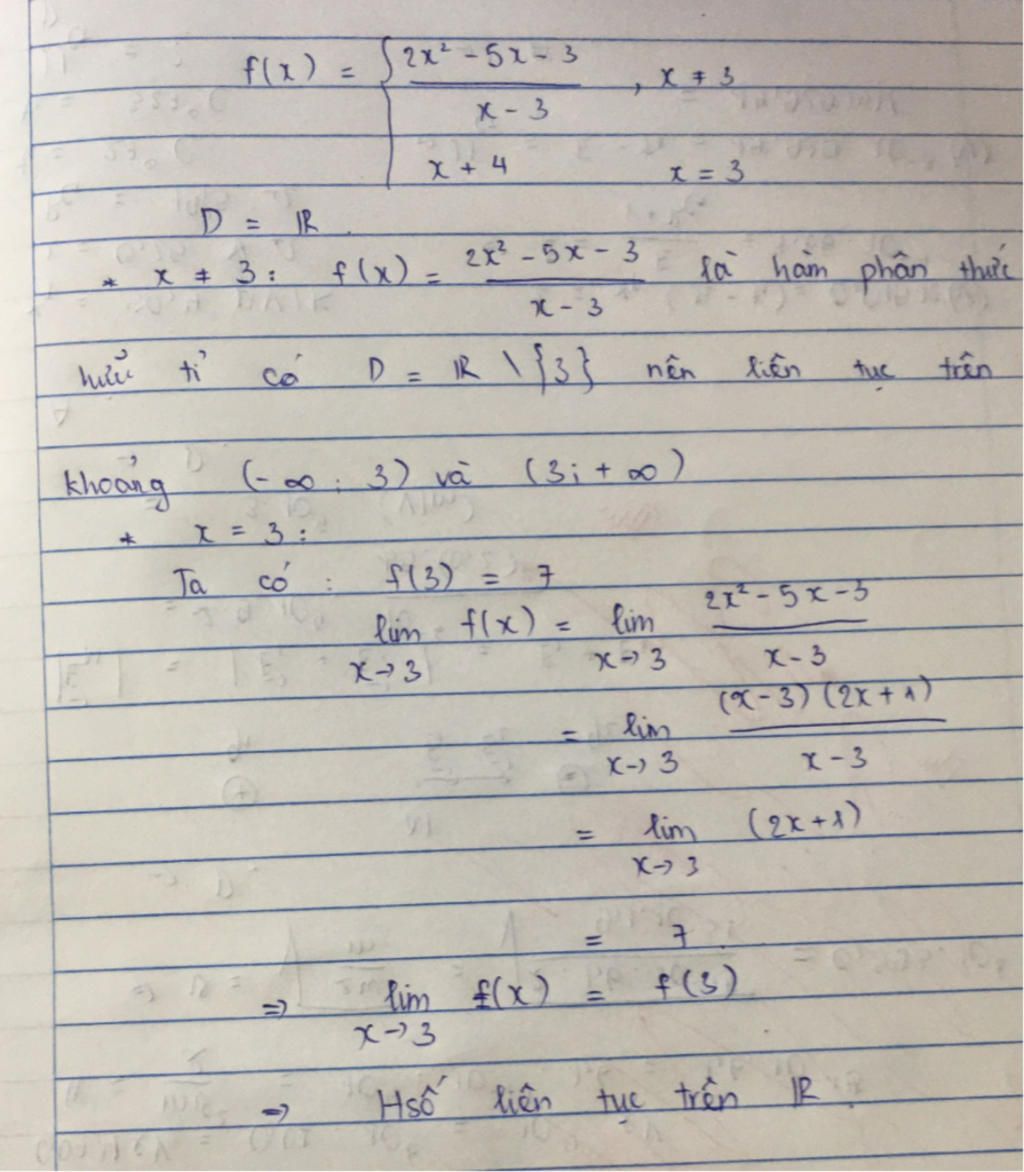 f(x) = { (2x² - 5x - 3)/(x - 3) , x ≠ 3
x + 4 x = 3
D = ℝ.
* x ≠ 3 : f(x) = (2x² - 5x - 3)/(x - 3) là hàm phân thức
hữu tỉ có D = ℝ \ {3} nên liên tục trên
khoảng (-∞ ; 3) và (3 ; +∞)
* x = 3 :
Ta có : f(3) = 7
lim x→3 f(x) = lim x→3 (2x² - 5x - 3)/(x - 3)
= lim x→3 ((x - 3)(2x + 1))/(x - 3)
= lim x→3 (2x + 1)
= 7.
⇒ lim x→3 f(x) = f(3)
⇒ Hsố liên tục trên ℝ.